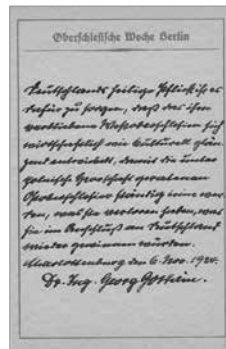 Oberschlesische Woche Berlin
Deutschlands heilige Pflicht ist es
dafür zu sorgen, daß das ihm
verbliebene Westoberschlesien sich
wirtschaftlich wie kulturell glän-
zend entwickelt, damit die unter
polnische Herrschaft geratenen
Oberschlesier ständig inne wer-
den, was sie verloren haben, was
sie im Anschluß an Deutschland
wieder gewinnen würden.
Charlottenburg den 6. Nov. 1924.
Dr. Ing. Georg Gothein.